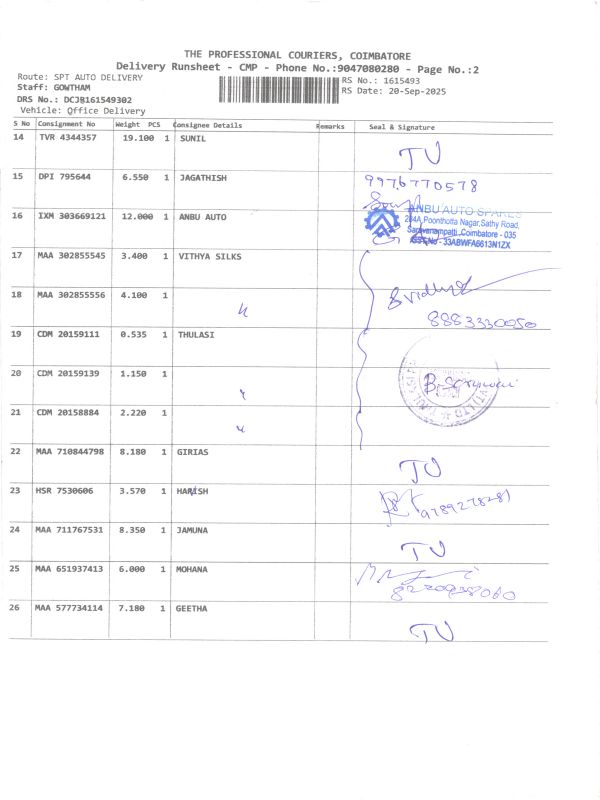 THE PROFESSIONAL COURIERS, COIMBATORE
Delivery Runsheet - CMP - Phone No.:9047080280 - Page No.:2
Route: SPT AUTO DELIVERY
RS No.: 1615493
Staff: GOWTHAM
RS Date: 20-Sep-2025
DRS No.: DCJB161549302
Vehicle: Qffice Delivery
S No Consignment No Weight PCS Consignee Details Remarks Seal & Signature
14 TVR 4344357 19.100 1 SUNIL
TU
15 DPI 795644 6.550 1 JAGATHISH 9976770578
16 IXM 303669121 12.000 1 ANBU AUTO
ANBU AUTO SPARES
284A, Poonthotta Nagar, Sathy Road,
Saravanampatti, Coimbatore - 035
GST No - 33ABWFA6613N1ZX
17 MAA 302855545 3.400 1 VITHYA SILKS
18 MAA 302855556 4.100 1
8883330050
19 CDM 20159111 0.535 1 THULASI
20 CDM 20159139 1.150 1
21 CDM 20158884 2.220 1
22 MAA 710844798 8.180 1 GIRIAS
TU
23 HSR 7530606 3.570 1 HARISH
9789278281
24 MAA 711767531 8.350 1 JAMUNA
TU
25 MAA 651937413 6.000 1 MOHANA
8220938060
26 MAA 577734114 7.180 1 GEETHA
TU